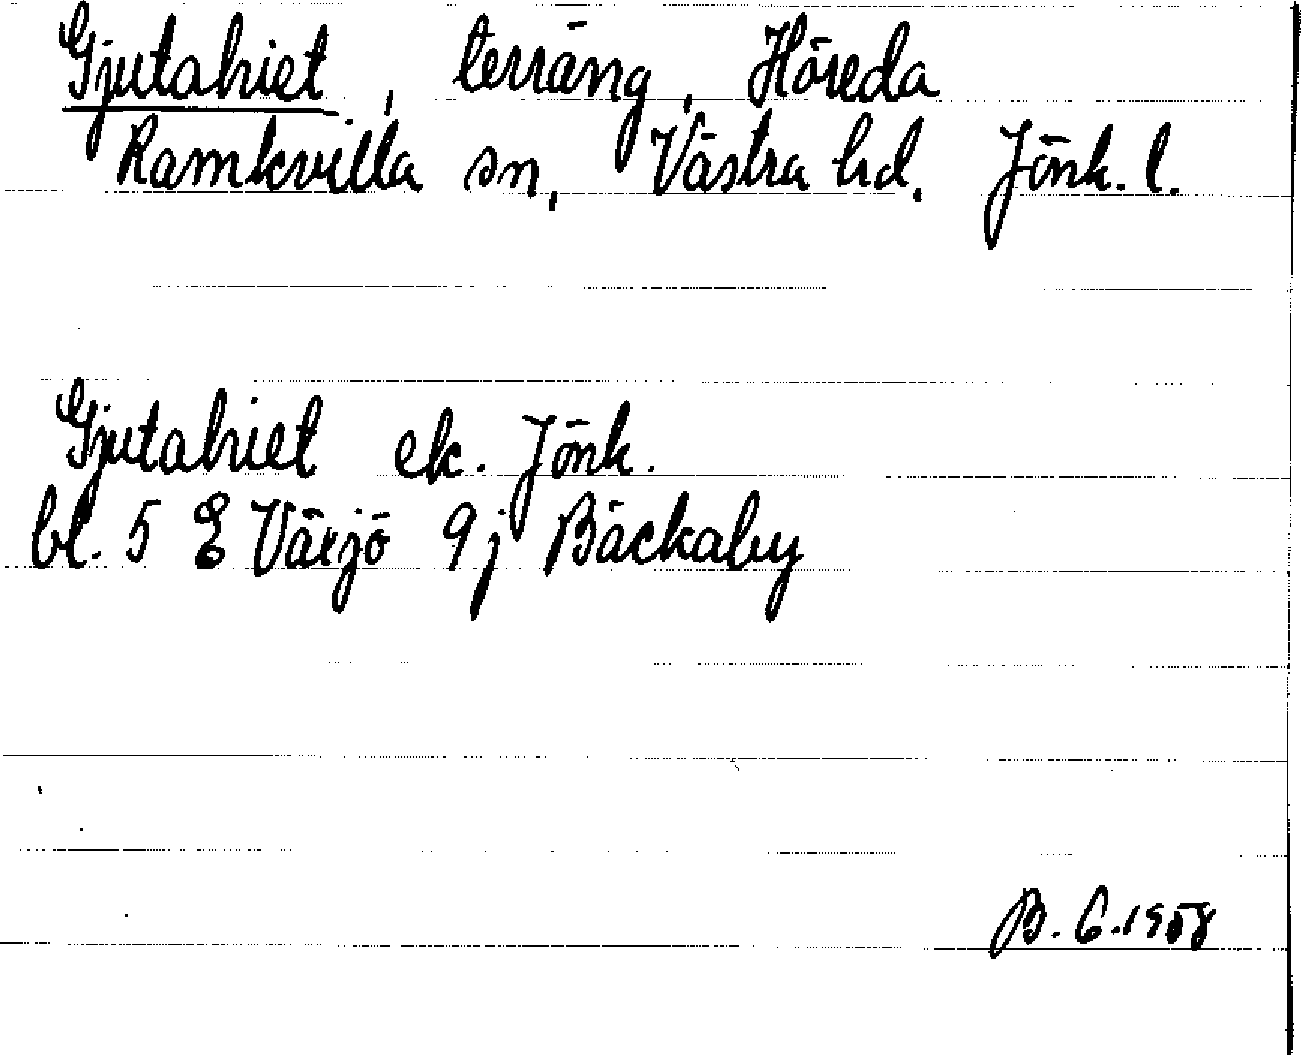 Gjutahiet, terräng, Höreda
Ramkvilla sn, Västra hd, Jönk. l.
Gjutahiet ek. Jönk.
bl. 5 E Växjö 9j Bäckaby
B. G. 1958